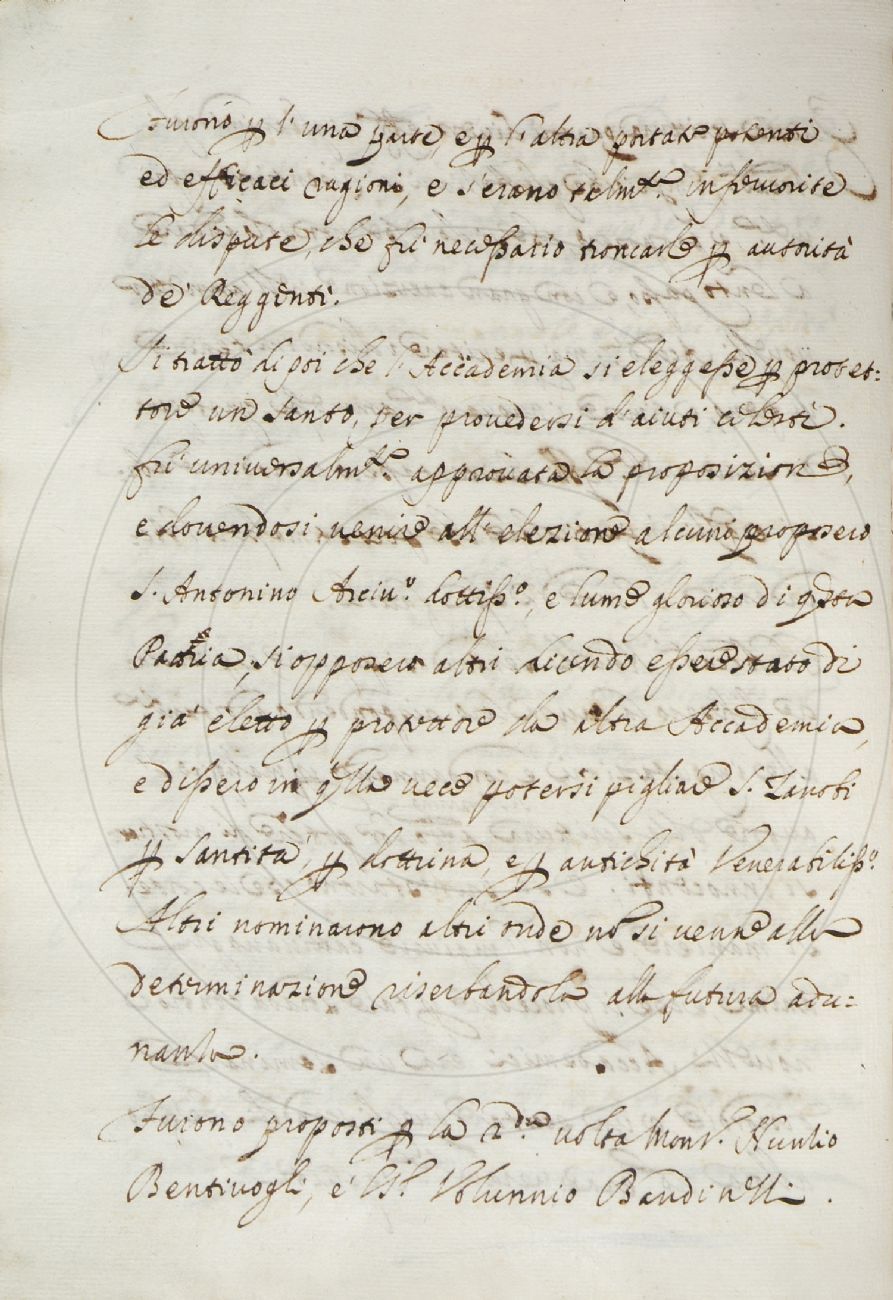 Furono p l'una parte, e p l'altra portate potenti
ed efficaci ragioni, e s'erano talm.te infervorite
le dispute, che fù necessario troncarle p autorità
de' Reggenti.
Si trattò di poi che l'Accademia si eleggesse p protet:
tore un Santo, per provedersi d'aiuti celesti.
fù universalm.te approvata la proposizione,
e dovendosi venire all'elezione alcuni proposero
S. Antonino Arciv.o dottiss.o, e lume glorioso di qsta
Patria, si opposero altri dicendo essere stato di
già eletto p protettore da altra Accademia,
e dissero in qlla vece potersi pigliare S. Zanobi
p santità, p dottrina, e p antichità Venerabiliss.o
Altri nominarono altri onde nõ si venne alla
determinazione riserbandola alla futura adu:
nanza.
Furono proposti p la 2.da volta Mons.r Nunzio
Bentivogli, e 'l S.r Volunnio Bandinelli.